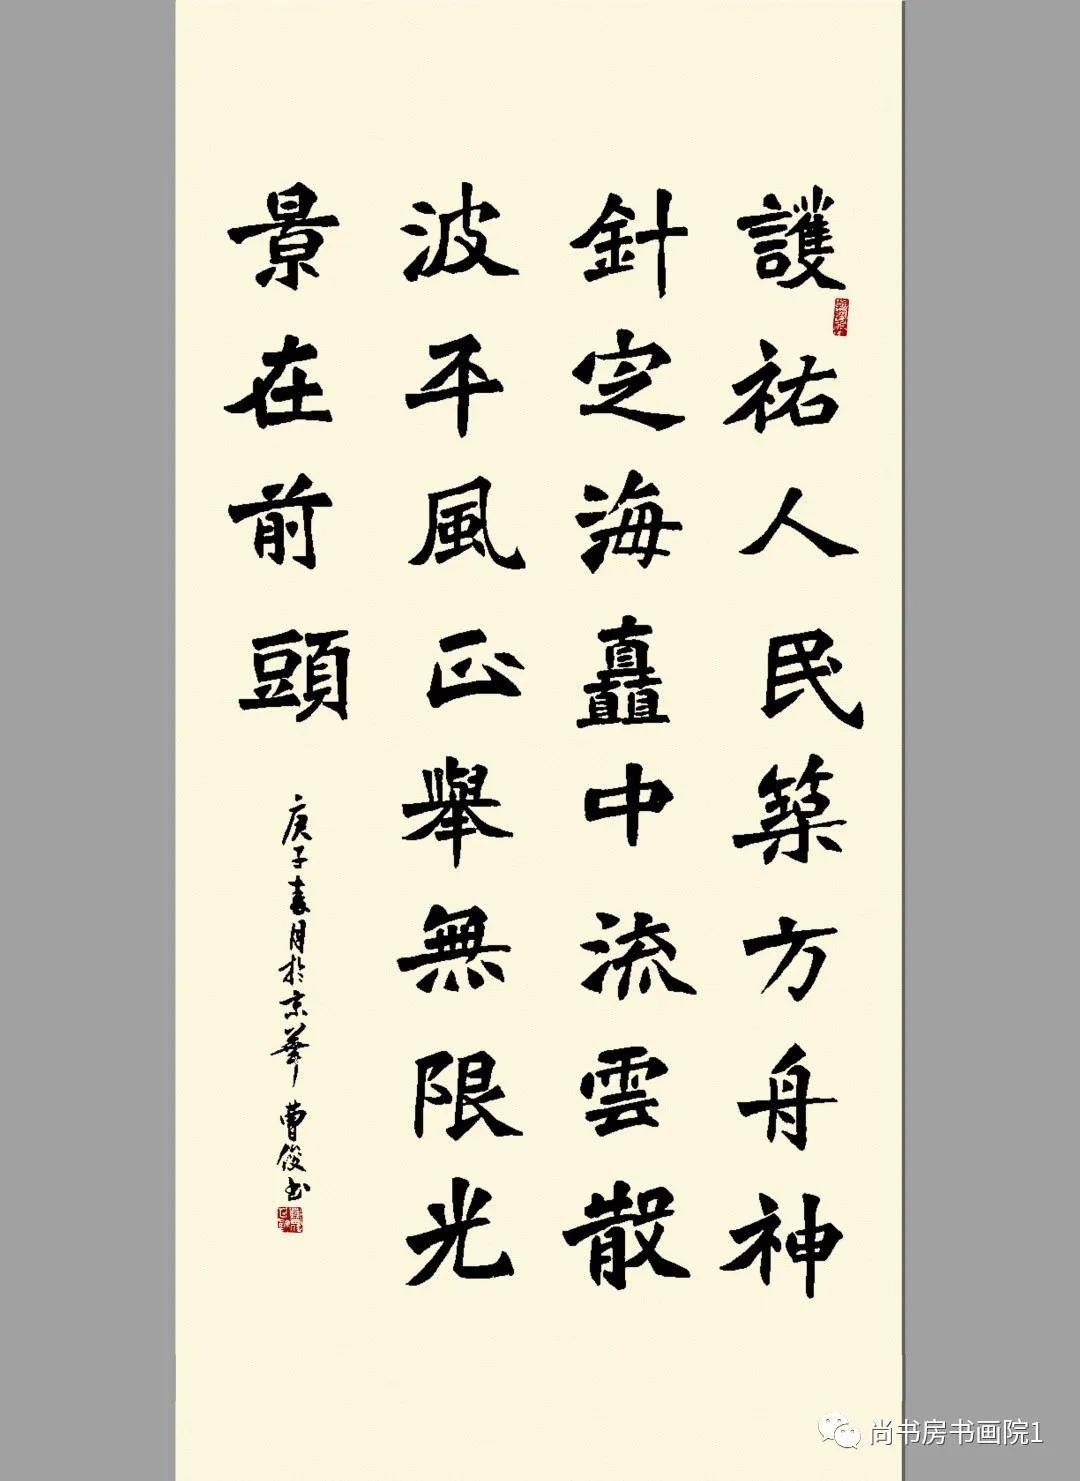 護祐人民築方舟神
針定海矗中流雲散
波平風正舉無限光
景在前頭
庚子春月於京華曹俊书
尚书房书画院1